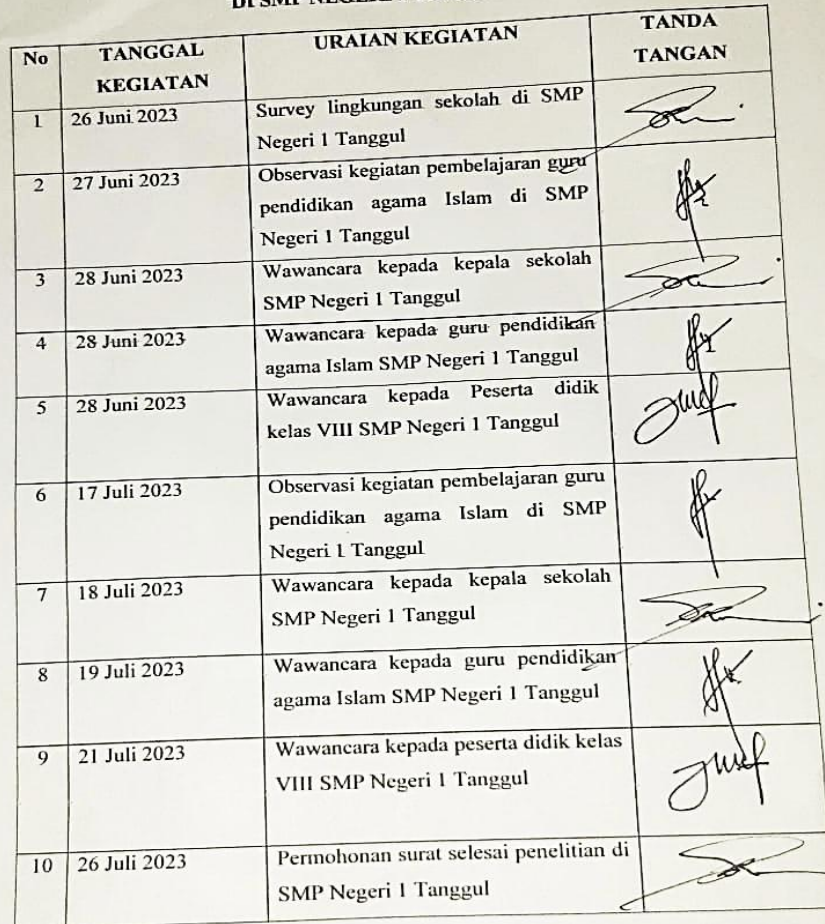 DI SMP NEGERI
No TANGGAL KEGIATAN URAIAN KEGIATAN TANDA TANGAN
1 26 Juni 2023 Survey lingkungan sekolah di SMP
Negeri 1 Tanggul
2 27 Juni 2023 Observasi kegiatan pembelajaran guru
pendidikan agama Islam di SMP
Negeri 1 Tanggul
3 28 Juni 2023 Wawancara kepada kepala sekolah
SMP Negeri 1 Tanggul
4 28 Juni 2023 Wawancara kepada guru pendidikan
agama Islam SMP Negeri 1 Tanggul
5 28 Juni 2023 Wawancara kepada Peserta didik
kelas VIII SMP Negeri 1 Tanggul
6 17 Juli 2023 Observasi kegiatan pembelajaran guru
pendidikan agama Islam di SMP
Negeri 1 Tanggul
7 18 Juli 2023 Wawancara kepada kepala sekolah
SMP Negeri 1 Tanggul
8 19 Juli 2023 Wawancara kepada guru pendidikan
agama Islam SMP Negeri 1 Tanggul
9 21 Juli 2023 Wawancara kepada peserta didik kelas
VIII SMP Negeri 1 Tanggul
10 26 Juli 2023 Permohonan surat selesai penelitian di
SMP Negeri 1 Tanggul